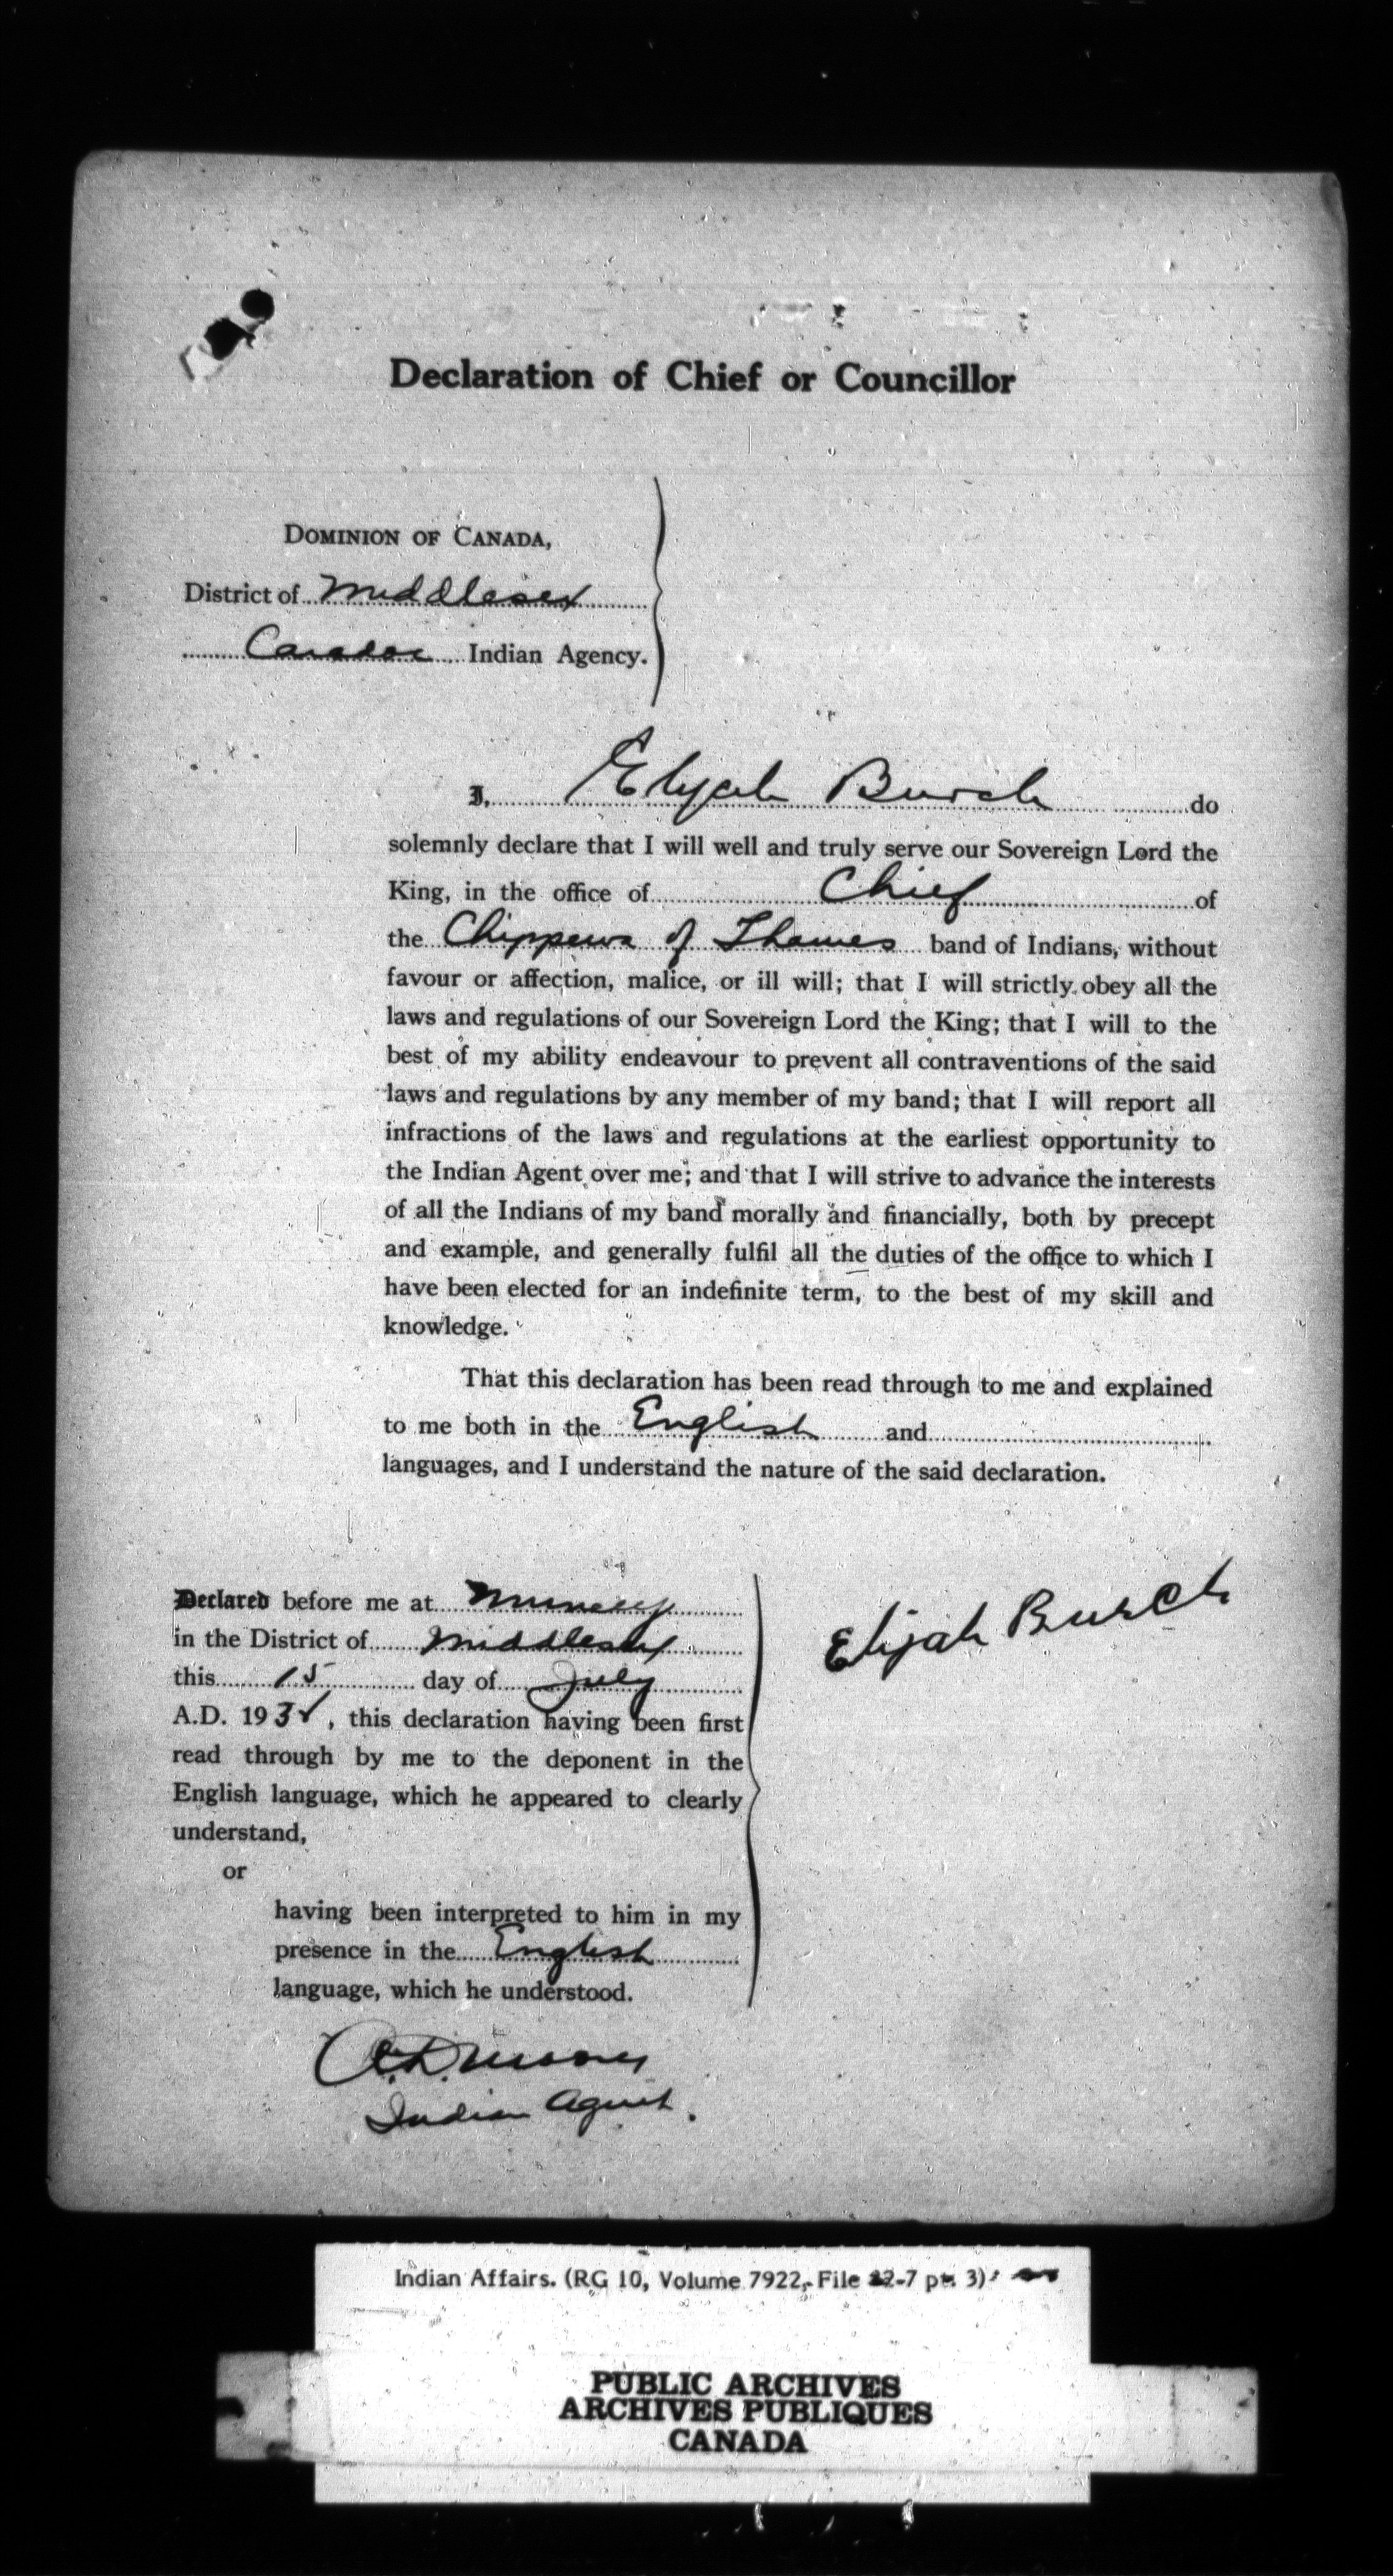 Declaration of Chief or Councillor
DOMINION OF CANADA,
District of Middlesex
Caradoc Indian Agency.
I, Elijah Burch do
solemnly declare that I will well and truly serve our Sovereign Lord the
King, in the office of Chief of
the Chippewa of Thames band of Indians, without
favour or affection, malice, or ill will; that I will strictly obey all the
laws and regulations of our Sovereign Lord the King; that I will to the
best of my ability endeavour to prevent all contraventions of the said
laws and regulations by any member of my band; that I will report all
infractions of the laws and regulations at the earliest opportunity to
the Indian Agent over me; and that I will strive to advance the interests
of all the Indians of my band morally and financially, both by precept
and example, and generally fulfil all the duties of the office to which I
have been elected for an indefinite term, to the best of my skill and
knowledge.
That this declaration has been read through to me and explained
to me both in the English and
languages, and I understand the nature of the said declaration.
Declared before me at Muncey
in the District of Middlesex
this 15 day of July
A.D. 193 , this declaration having been first
read through by me to the deponent in the
English language, which he appeared to clearly
understand,
or
having been interpreted to him in my
presence in the English
language, which he understood.
Elijah Burch
A.D. Moore
Indian Agent.
Indian Affairs. (RG 10, Volume 7922, File 22-7 pt. 3)
PUBLIC ARCHIVES
ARCHIVES PUBLIQUES
CANADA